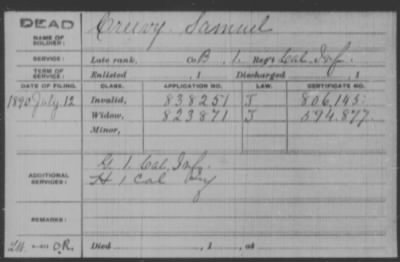 DEAD
NAME OF SOLDIER: Samuel
SERVICE: Late rank, Co B, 1. Reg't Cal. Inf.
TERM OF SERVICE: Enlisted , 1 Discharged , 1
DATE OF FILING. CLASS. APPLICATION NO. LAW. CERTIFICATE NO.
1890 July 12 Invalid, 838251 J 806.145
Widow, 823871 J 594.877
Minor,
ADDITIONAL SERVICES: G 1. Cal. Inf.
H 1 Cal
REMARKS:
Died , 1 , at